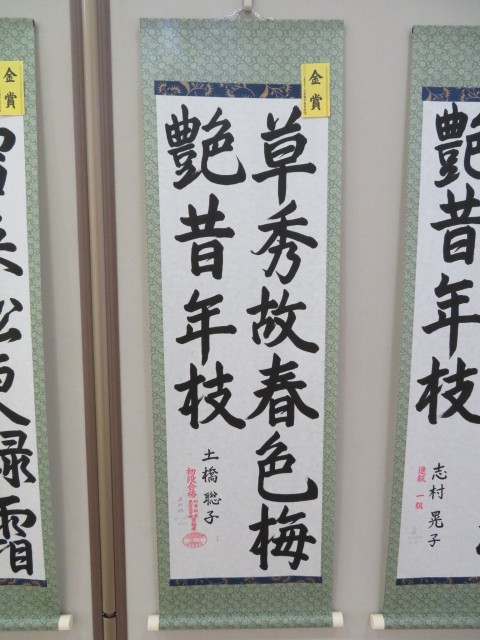 金賞
草秀故春色梅
艶昔年枝
土橋聡子
初段合格
艶昔年枝
志村晃子
進級 一級
金賞
雪来松更緑霜